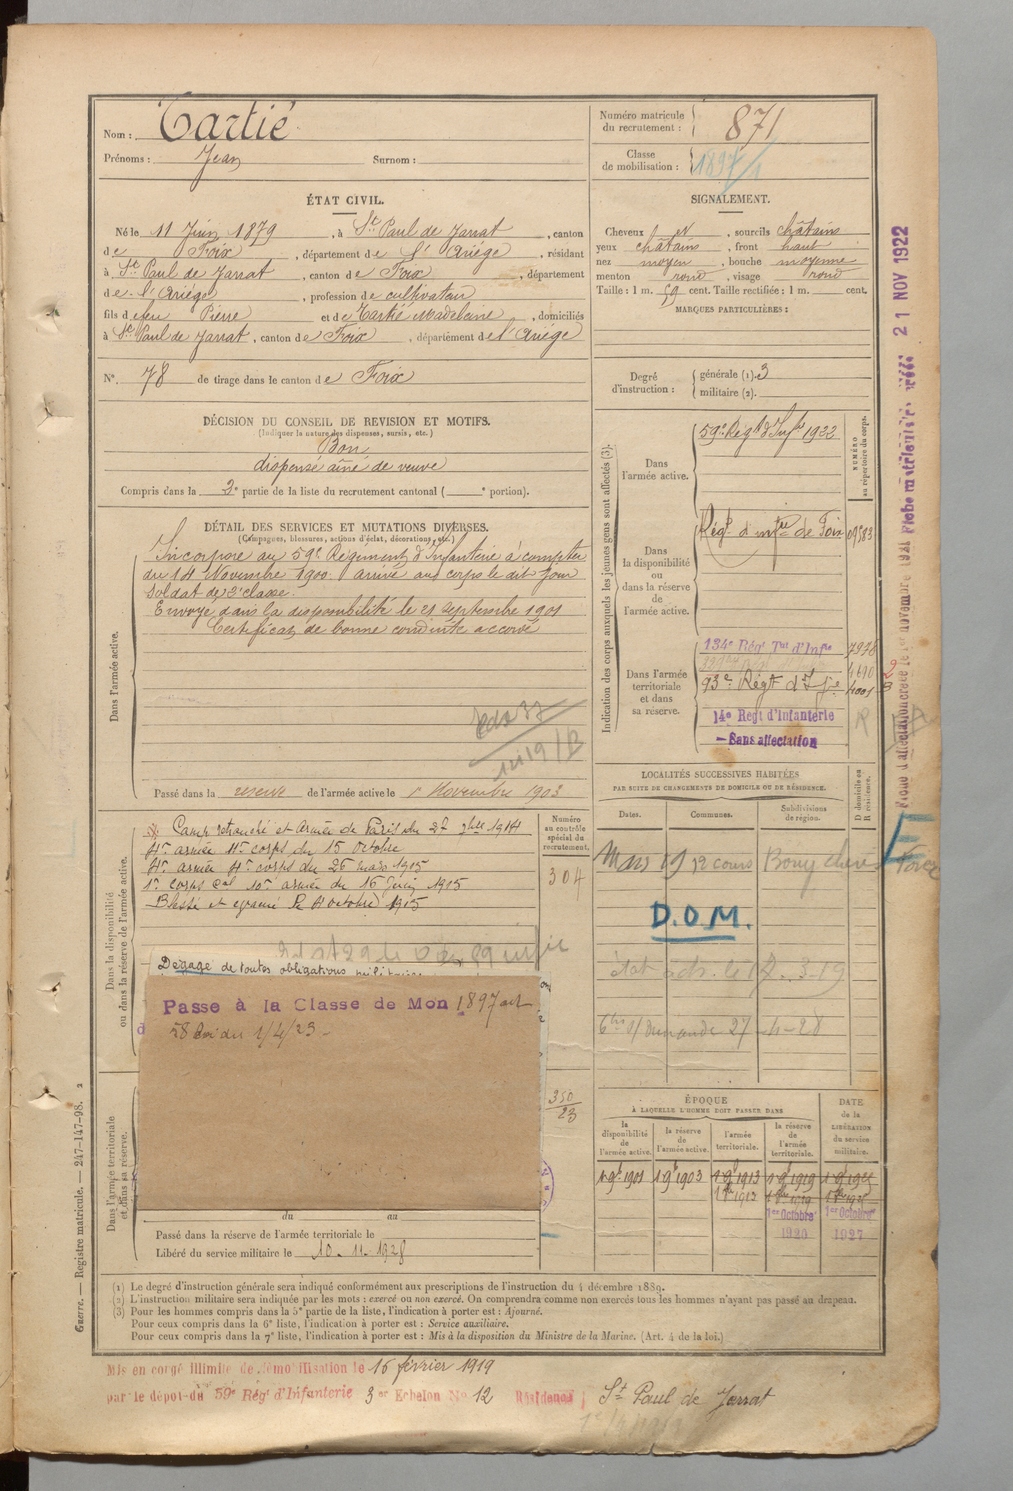 Nom : Tartié
Prénoms : Jean Surnom :
Numéro matricule du recrutement : 871
Classe de mobilisation : 1897/1
ÉTAT CIVIL.
Né le 11 Juin 1879, à St Paul de Jarrat, canton
de Foix, département de l'Ariège, résidant
à St Paul de Jarrat, canton de Foix, département
de l'Ariège, profession de cultivateur
fils de feu Pierre et de Tartié Madeleine, domiciliés
à St Paul de Jarrat, canton de Foix, département de l'Ariége
N° 78 de tirage dans le canton de Foix
SIGNALEMENT.
Cheveux et, sourcils châtains
yeux châtains, front haut
nez moyen, bouche moyenne
menton rond, visage rond
Taille : 1 m. 59 cent. Taille rectifiée : 1 m. cent.
MARQUES PARTICULIÈRES :
Degré d'instruction : générale (1). 3
militaire (2).
DÉCISION DU CONSEIL DE REVISION ET MOTIFS.
(Indiquer la nature des dispenses, sursis, etc.)
Bon
dispensé aîné de veuve
Compris dans la 2e partie de la liste du recrutement cantonal ( e portion).
DÉTAIL DES SERVICES ET MUTATIONS DIVERSES.
(Campagnes, blessures, actions d'éclat, décorations, etc.)
Dans l'armée active.
Incorporé au 59e Régiment d'Infanterie à compter
du 14 Novembre 1900. arrivé au corps le dit jour
Soldat de 2e classe.
Envoyé dans la disponibilité le 21 septembre 1901
Certificat de bonne conduite accordé
Passé dans la réserve de l'armée active le 1 Novembre 1903
Indication des corps auxquels les jeunes gens sont affectés (3).
NUMÉRO au répertoire du corps.
Dans l'armée active.
59e Régt d'Infie 1922
Dans la disponibilité ou dans la réserve de l'armée active.
Régt d'infrie de Foix 09383
Dans l'armée territoriale et dans sa réserve.
134e Rég Tal d'Infie
93e Régt d'Infie
14e Regt d'Infanterie
- Sans affectation
LOCALITÉS SUCCESSIVES HABITÉES
PAR SUITE DE CHANGEMENTS DE DOMICILE OU DE RÉSIDENCE.
D domicile ou R résidence.
Dates. Communes. Subdivisions de région.
Mars 19
D.O.M.
Dans la disponibilité ou dans la réserve de l'armée active.
Camp retranché et Armée de Paris du 27 7bre 1914
4e armée 11e corps du 15 Octobre
4e armée 4e corps du 26 mars 1915
1er corps Cal 10e armée du 16 Juin 1915
Blessé et évacué le 4 octobre 1915
Numéro au contrôle spécial du recrutement.
304
Dégagé de toutes obligations militaires
Passe à la Classe de Mon 1897 art
58 Loi du 1/4/23 -
350/23
Dans l'armée territoriale et dans sa réserve.
du au
Passé dans la réserve de l'armée territoriale le
Libéré du service militaire le 10-11-1928
ÉPOQUE
À LAQUELLE L'HOMME DOIT PASSER DANS
la disponibilité de l'armée active. la réserve de l'armée active. l'armée territoriale. la réserve de l'armée territoriale. DATE de la LIBÉRATION du service militaire.
1 9b 1901 1 9b 1903 1 9b 1913 1 9b 1919 1 9b 1925
1er Octobre 1920 1er Octobre 1927
(1) Le degré d'instruction générale sera indiqué conformément aux prescriptions de l'instruction du 4 décembre 1889.
(2) L'instruction militaire sera indiquée par les mots : exercé ou non exercé. On comprendra comme non exercés tous les hommes n'ayant pas passé au drapeau.
(3) Pour les hommes compris dans la 5e partie de la liste, l'indication à porter est : Ajourné.
Pour ceux compris dans la 6e liste, l'indication à porter est : Service auxiliaire.
Pour ceux compris dans la 7e liste, l'indication à porter est : Mis à la disposition du Ministre de la Marine. (Art. 4 de la loi.)
Mis en congé illimité de démobilisation le 16 février 1919
par le dépôt du 59e Rég' d'Infanterie 3er Echelon No 12 Résidence : St Paul de Jarrat
Guerre. — Registre matricule. — 247-147-98. 2
21 NOV 1922